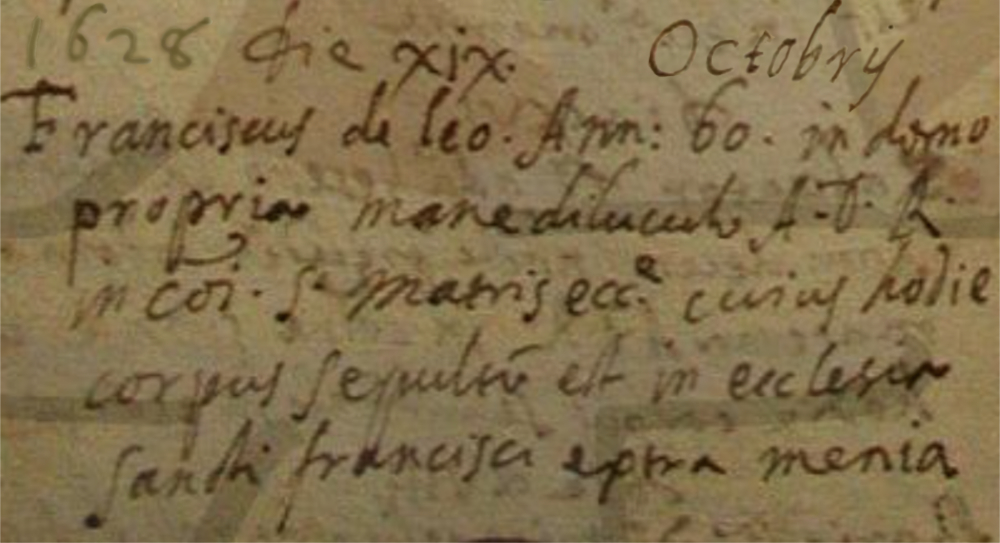 1628 die xix. Octobrij
Franciscus de leo. Ann: 60. in domo
propria mane diluculo A. D. R.
in cōi. S. Matris ecc.e cuius hodie
corpus sepultū est in ecclesia
sancti francisci extra menia